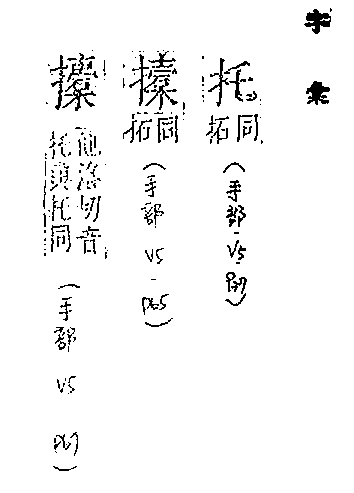 字彙
托
同拓
(手部-V5-P37)
同拓
(手部 V5-P65)
他落切音
托與托同
(手部 V5 P67)